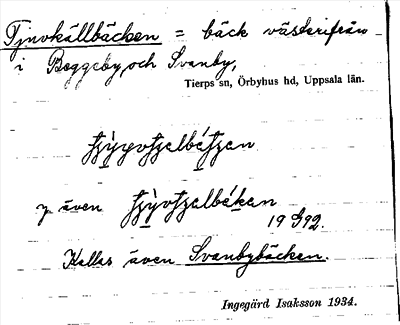 Tjuvkällbäcken = bäck västerifrån
i Boggeby, och Svanby,
Tierps sn, Örbyhus hd, Uppsala län.
även
19 992.
Kallas även Svanbybäcken.
Ingegärd Isaksson 1934.